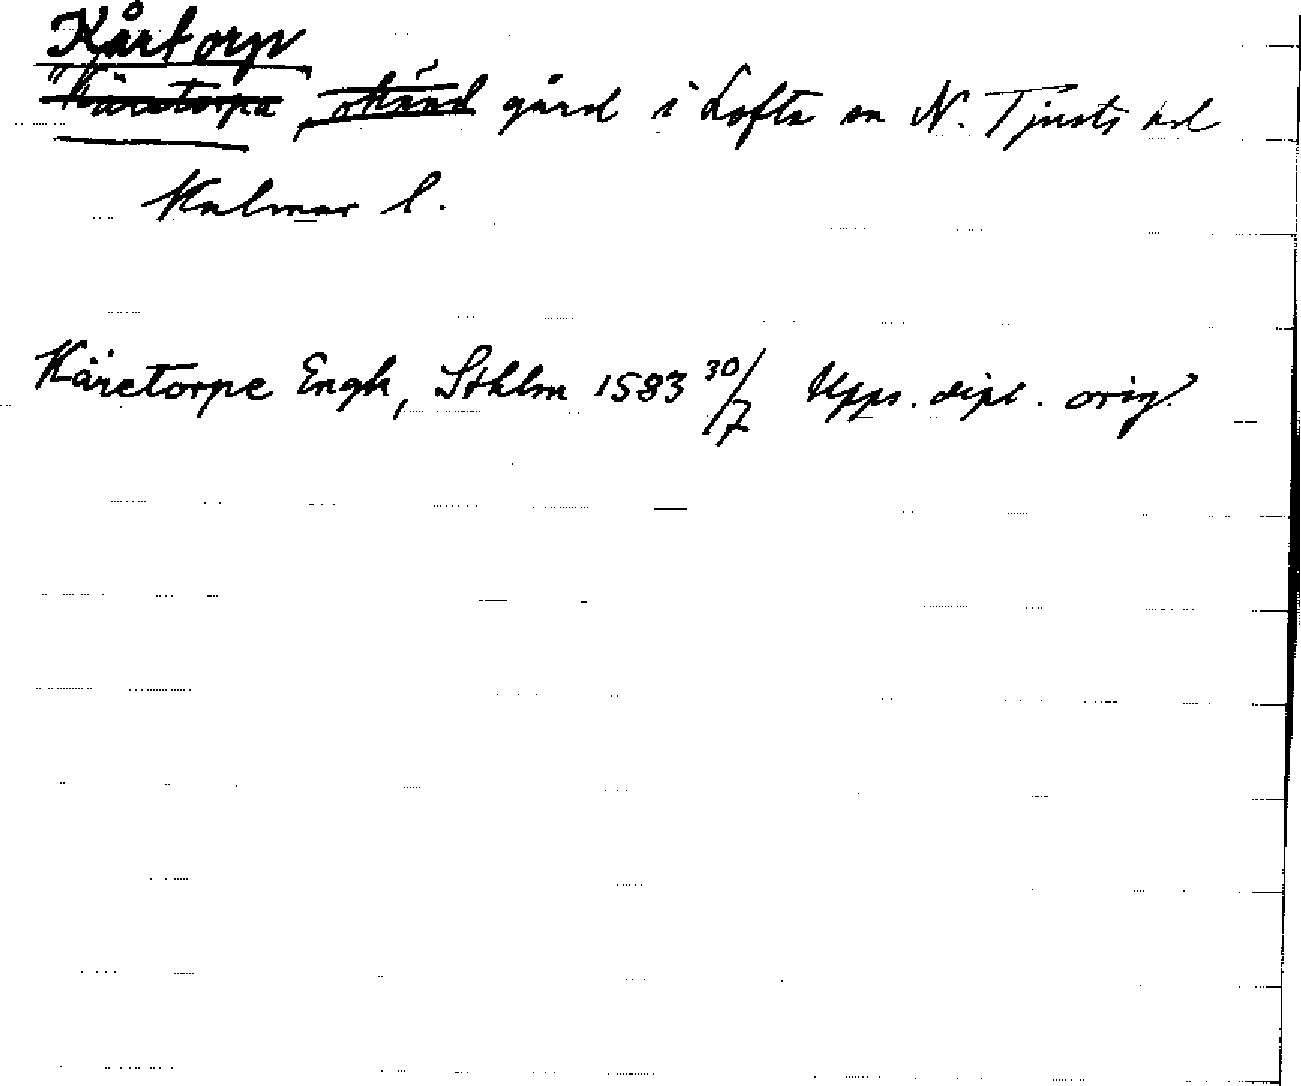 Kårtorp
Käretorpe, okänd gård i Lofta sn N. Tjusts hd
Kalmar l.
Käretorpe Engh, Sthlm 1583 30/7 Upps. dipl. orig.